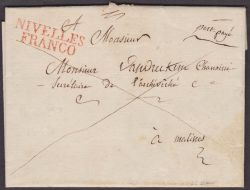 NIVELLES
FRANCO
port payé
Monsieur
Monsieur Chanoine
Secrétaire de l'archevêché
à malines